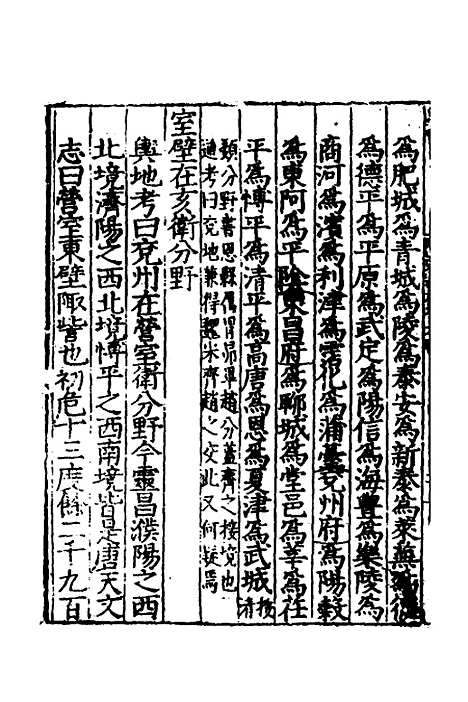 為肥城為青城為陵為泰安為新泰為萊蕪為德
為德平為平原為武定為陽信為海豐為樂陵為
商河為濱為利津為霑化為蒲臺兗州府為陽穀
為東阿為平陰東昌府為聊城為堂邑為莘為茌
平為博平為清平為高唐為恩為夏津為武城按清
類分野書恩縣偶冒昴畢趙分蓋齊之接境也
通考曰兗地兼得魏宋齊趙之交此又何疑焉
室壁在亥衛分野
輿地考曰兗州在營室衛分野今靈昌濮陽之西
北境濟陽之西北境博平之西南境皆是唐天文
志曰營室東壁陬訾也初危十三度餘二千九百